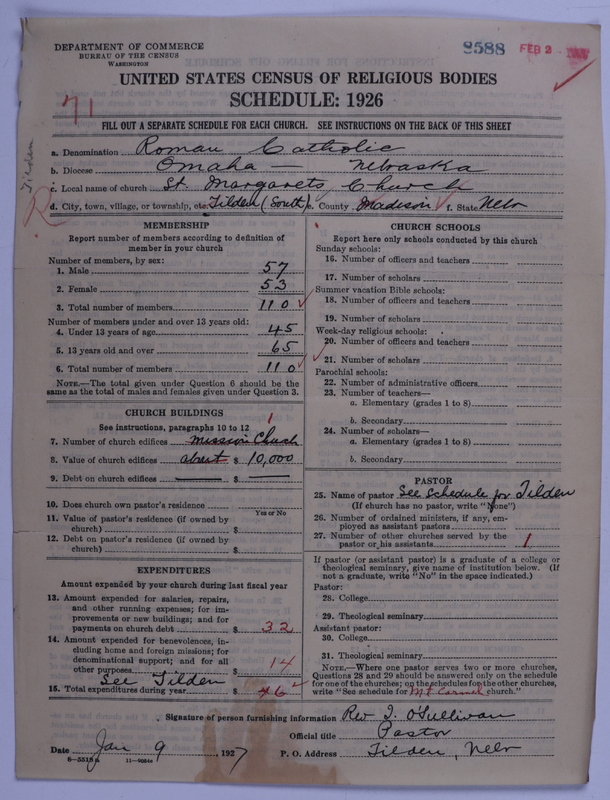 DEPARTMENT OF COMMERCE
BUREAU OF THE CENSUS
WASHINGTON
8588 FEB 2
UNITED STATES CENSUS OF RELIGIOUS BODIES
SCHEDULE: 1926
71
FILL OUT A SEPARATE SCHEDULE FOR EACH CHURCH. SEE INSTRUCTIONS ON THE BACK OF THIS SHEET
Tilden
a. Denomination Roman Catholic
b. Diocese Omaha — Nebraska
c. Local name of church St. Margarets Church
d. City, town, village, or township, etc. Tilden (South) e. County Madison f. State Nebr
MEMBERSHIP
Report number of members according to definition of
member in your church
Number of members, by sex:
1. Male 57
2. Female 53
3. Total number of members 110
Number of members under and over 13 years old:
4. Under 13 years of age 45
5. 13 years old and over 65
6. Total number of members 110
NOTE.—The total given under Question 6 should be
the same as the total of males and females given under Question 3.
CHURCH BUILDINGS
See instructions, paragraphs 10 to 12
1
7. Number of church edifices mission Church
8. Value of church edifices about $ 10,000
9. Debt on church edifices $
10. Does church own pastor's residence
Yes or No
11. Value of pastor's residence (if owned by
church) $
12. Debt on pastor's residence (if owned by
church) $
EXPENDITURES
Amount expended by your church during last fiscal year
13. Amount expended for salaries, repairs,
and other running expenses; for im-
provements or new buildings; and for
payments on church debt $ 32
14. Amount expended for benevolences, in-
cluding home and foreign missions; for
denominational support; and for all
other purposes $ 14
See Tilden
15. Total expenditures during year $ 46
CHURCH SCHOOLS
Report here only schools conducted by this church
Sunday schools:
16. Number of officers and teachers
17. Number of scholars
Summer vacation Bible schools:
18. Number of officers and teachers
19. Number of scholars
Week-day religious schools:
20. Number of officers and teachers
21. Number of scholars
Parochial schools:
22. Number of administrative officers
23. Number of teachers—
a. Elementary (grades 1 to 8)
b. Secondary
24. Number of scholars—
a. Elementary (grades 1 to 8)
b. Secondary
PASTOR
25. Name of pastor See Schedule for Tilden
(If church has no pastor, write "None")
26. Number of ordained ministers, if any, em-
ployed as assistant pastors
27. Number of other churches served by the
pastor or his assistants 1
If pastor (or assistant pastor) is a graduate of a college or
theological seminary, give name of institution below. (If
not a graduate, write "No" in the space indicated.)
Pastor:
28. College
29. Theological seminary
Assistant pastor:
30. College
31. Theological seminary
NOTE.—Where one pastor serves two or more churches,
Questions 28 and 29 should be answered only on the schedule
for one of the churches; on the schedules for the other churches,
write "See schedule for Mt Carmel church."
Signature of person furnishing information Rev J. O'Sullivan
Official title Pastor
Date Jan 9, 1927 P. O. Address Tilden, Nebr